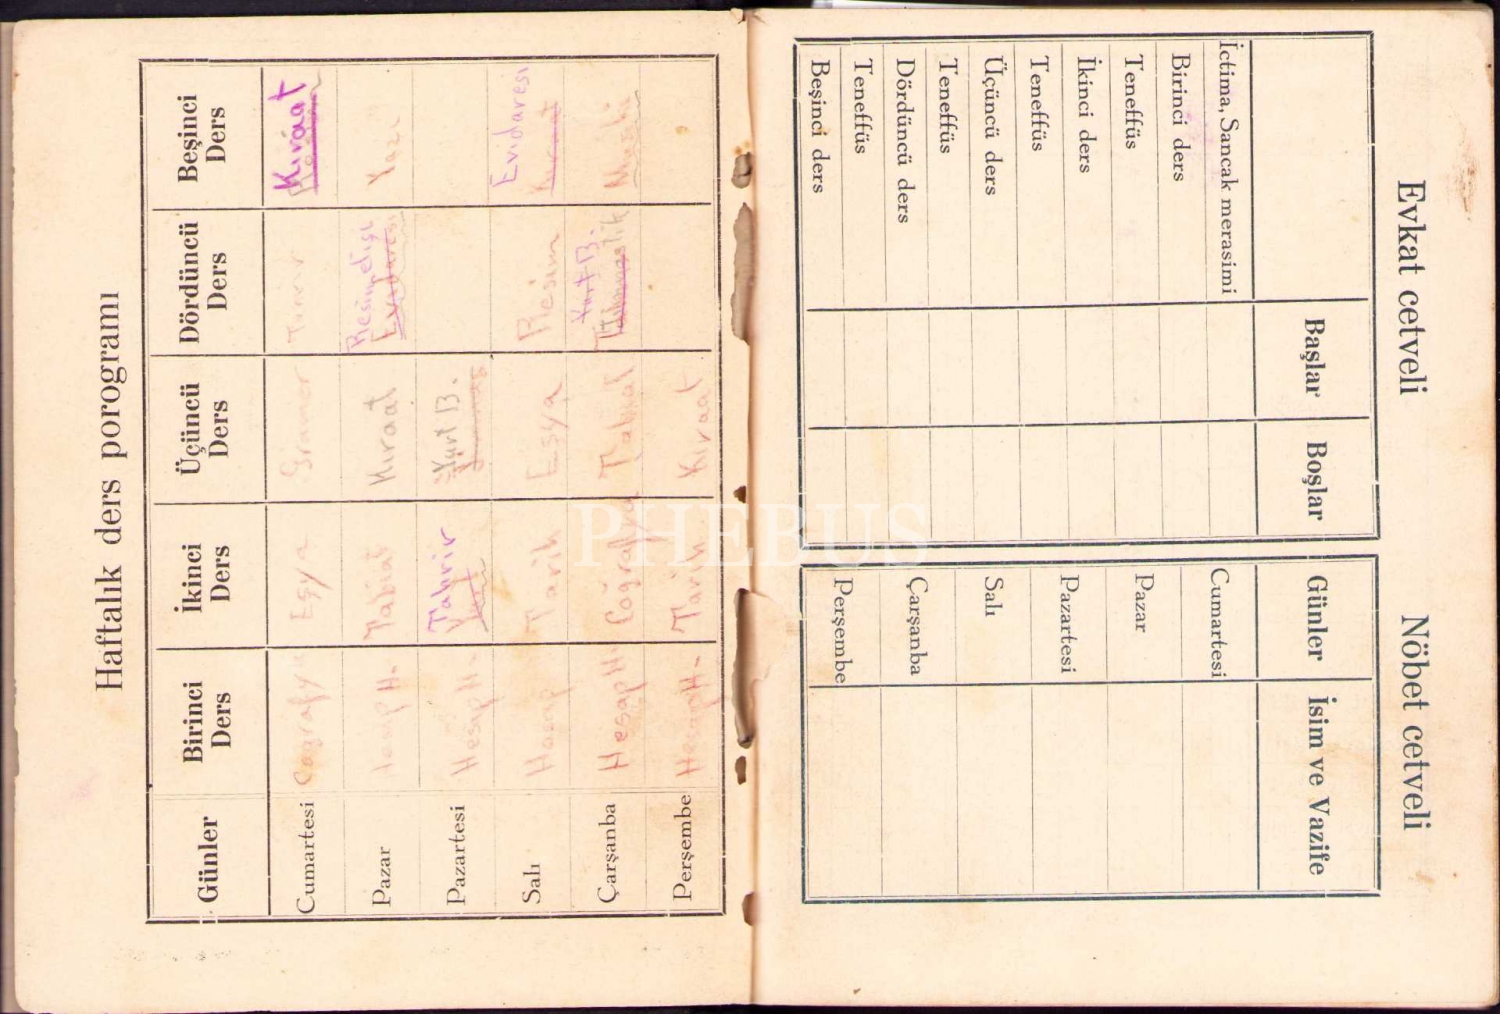 Haftalık ders porogramı
Günler Birinci Ders İkinci Ders Üçüncü Ders Dördüncü Ders Beşinci Ders
Cumartesi Coğrafya Eşya Gramer Kıraat
Pazar Hesap H. Tabiat Kıraat Resimelişi Evidaresi Yazı
Pazartesi Hesap H. Tahrir Yurt Yurt B.
Salı Hesap Tarih Eşya Resim Evidaresi
Çarşanba Hesap H. Coğrafya Tabiat Yurt B.
Perşembe Hesap H. Tarih Kıraat
Evkat cetveli
Başlar Boşlar
İctima, Sancak merasimi
Birinci ders
Teneffüs
İkinci ders
Teneffüs
Üçüncü ders
Teneffüs
Dördüncü ders
Teneffüs
Beşinci ders
Nöbet cetveli
Günler İsim ve Vazife
Cumartesi
Pazar
Pazartesi
Salı
Çarşanba
Perşembe
PHEBUS